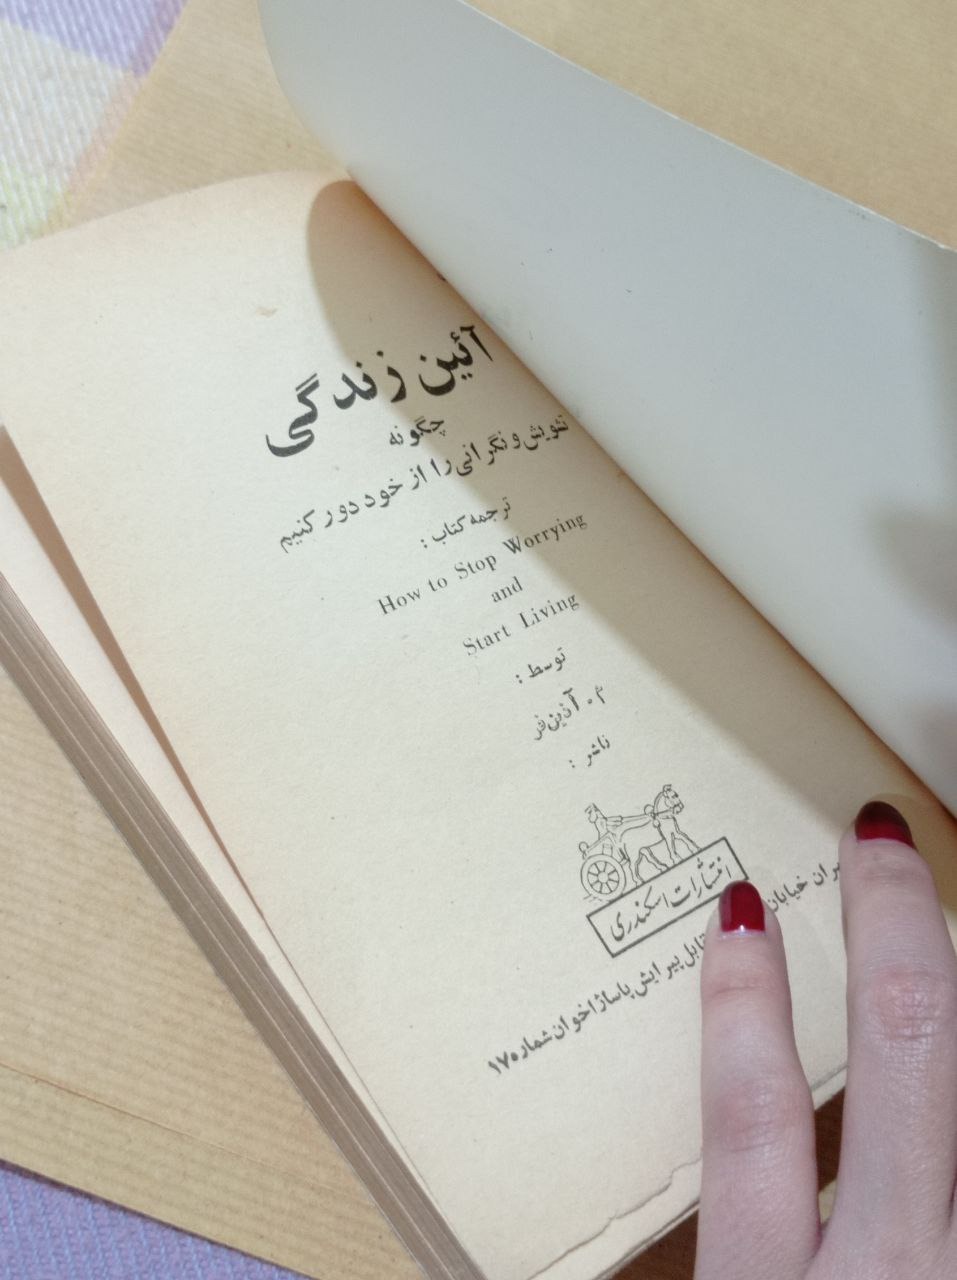 آئین زندگی
چگونه
تشویش و نگرانی را از خود دور کنیم
ترجمه کتاب :
How to Stop Worrying
and
Start Living
توسط :
م . آذین‌فر
ناشر :
انتشارات اسکندری
خیابان
پیرایش پاساژ اخوان شماره ۱۷